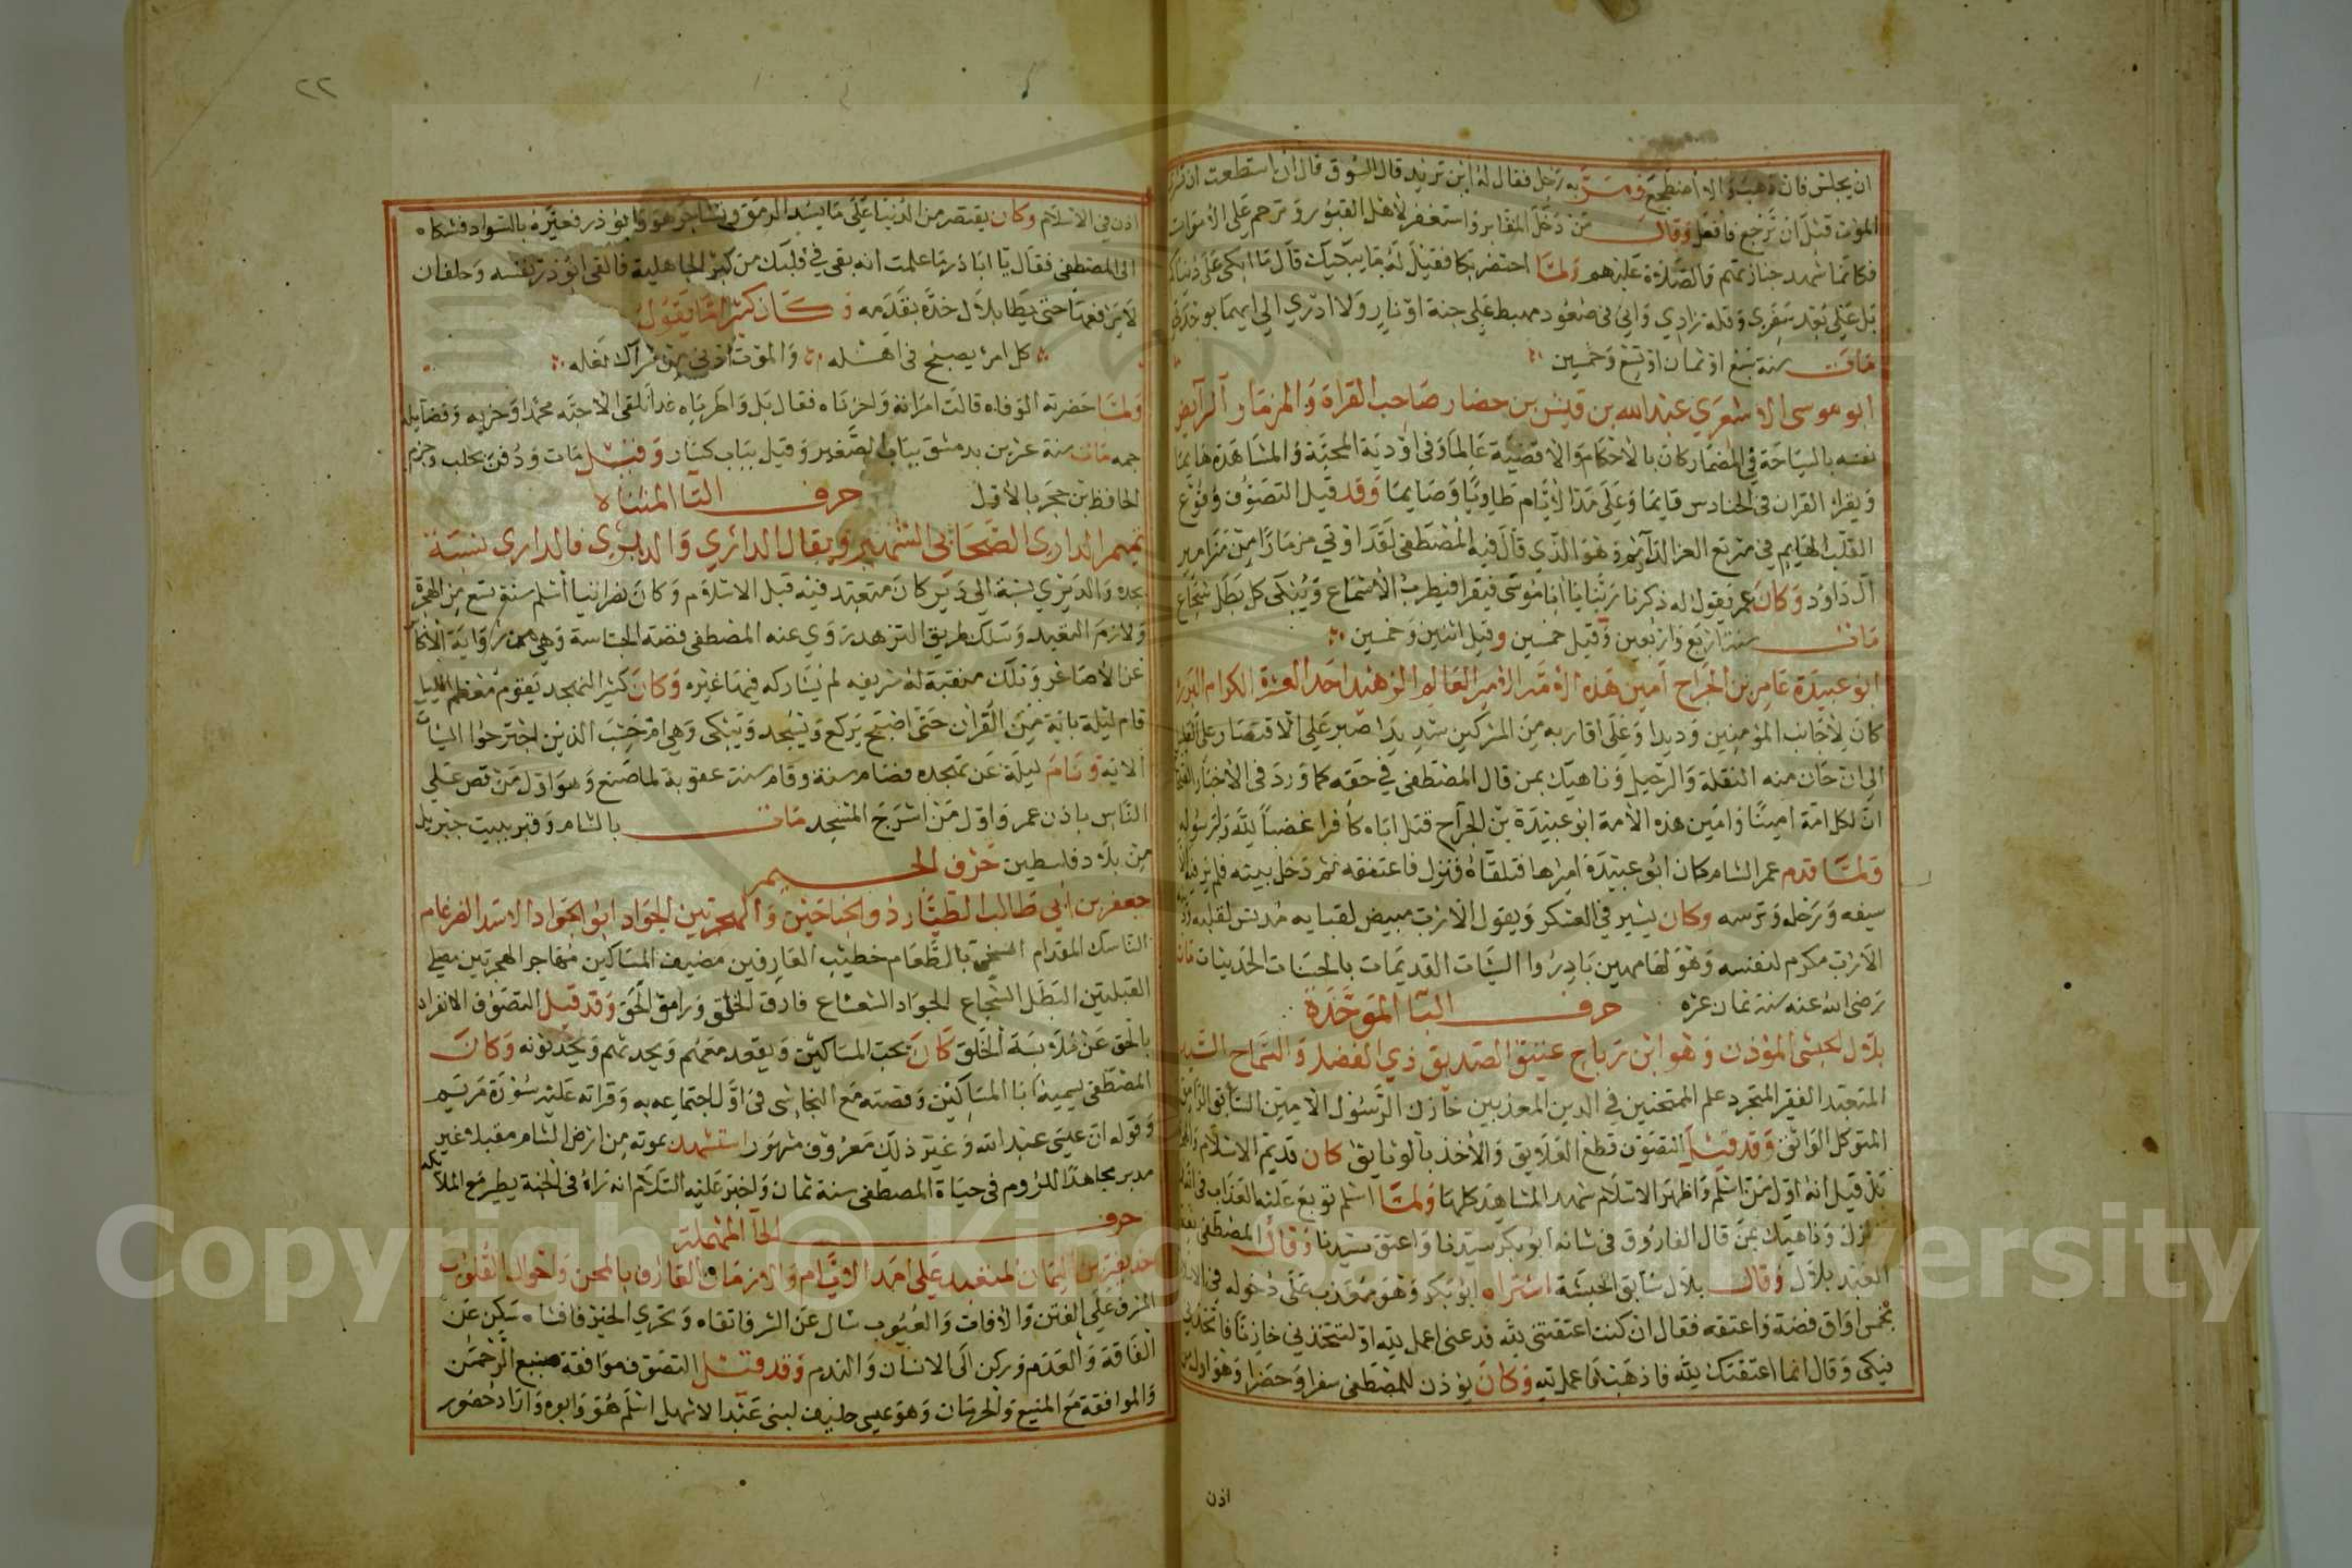 ان يجلس فان ذهب والا اضطجع ومر به رجل فقال له اين تريد قال السوق قال ان استطعت ان تشتري
الموت قبل ان ترجع فافعل وقال من دخل المقابر واستغفر لاهل القبور وترحم على الاموات
فكانما شهد جنازتهم والصلاة عليهم ولما احتضر بكا فقيل له ما يبكيك قال ما ابكي على دنياكم
بل على بعد سفري وقلة زادي واني في صعود مهبط على جنة او نار ولا ادري الى ايهما يوخذ
مات سنة سبع او ثمان او تسع وخمسين
ابو موسى الاشعري عبد الله بن قيس بن حضار صاحب القراة والمزمار الرايض
نفسه بالسياحة في المضمار كان بالاحكام والاقضية عالما وفي اودية المحبة والمشاهدة هايما
ويقراء القران في الحنادس قايما وعلى مدا الايام طاويا وصايما وقد قيل التصوف وقوع
القلب الهايم في مرتع العز الدايم وهو الذي قال فيه المصطفى لقد اوتي مزمارا من مزامير
آل داود وكان عمر يقول له ذكرنا ربنا يا ابا موسى فيقرا فيطرب الاسماع ويبكى كل بطل شجاع
مات سنة اربع واربعين وقيل خمسين وقيل اثنين وخمسين
ابو عبيدة عامر بن الجراح امين هذه الامة الامير العالم الزهيد احد العشرة الكرام البررة
كان لاجانب المؤمنين وديدا وعلى اقاربه من المشركين شديدا صبر على الاقتصار على القليل
الى ان حان منه النقلة والرحيل وناهيك بمن قال المصطفى في حقه كما ورد في الاخبار
ان لكل امة امينا وامين هذه الامة ابو عبيدة بن الجراح قتل اباه كافرا غضبا لله ولرسوله
ولما قدم عمر الشام كان ابو عبيدة اميرها فتلقاه فنزل فاعتنقه ثم دخل بيته فلم ير فيه الا
سيفه ورحله وترسه وكان يسير في العسكر ويقول الا رب مبيض لثيابه مدنس لقلبه
الا رب مكرم لنفسه وهو لها مهين بادروا السيات القديمات بالحسنات الحديثات مات
رضى الله عنه سنة ثمان عشرة حرف البا الموحدة
بلال الحبشى المؤذن وهو ابن رباح عتيق الصديق ذي الفضل والسماح السيد
المتعبد الفقير المتجرد علم الممتحنين في الدين المعذبين خازن الرسول الامين السابق
المتوكل الواثق وقد قيل التصوف قطع العلايق والاخذ بالوثايق كان قديم الاسلام
بل قيل انه اول من اسلم واظهر الاسلام شهد المشاهد كلها ولما اسلم نوبع عليه العذاب في الله
نزل وناهيك بمن قال الفاروق في شانه ابو بكر سيدنا واعتق سيدنا وقال المصطفى نعم
العبد بلال وقال بلال سابق الحبشة اشتراه ابو بكر وهو يعذب على دخوله في الاسلام
بخمس اواق فضة واعتقه فقال ان كنت اعتقتني لله فدعني اعمل لله او لتتخذني خازنا فاتخذني
فبكى وقال انما اعتقتك لله فاذهب فاعمل لله وكان يوذن للمصطفى سفرا وحضرا وهو اول من
اذن
٢٢
اذن في الاسلام وكان يقتصر من الدنيا على ما يسد الرمق وتشاجر هو وابو ذر فعيره بالسواد فشكاه
الى المصطفى فقال يا ابا ذر ما علمت انه بقى في قلبك من كبر الجاهلية فالقى ابو ذر نفسه وحلف ان
لا يرفعها حتى يطا بلال خده بقدمه وكان كثيرا ما يقول
كل امرئ يصبح في اهله والموت ادنى من شراك نعله
ولما حضرته الوفاه قالت امراته واحزناه فقال بل واطرباه غدا نلقى الاحبه محمدا وحزبه وفضايله
جمه مات سنة عشرين بدمشق بباب الصغير وقيل بباب كيسان وقيل مات ودفن بحلب وجزم
الحافظ بن حجر بالاول حرف التا المثناه
تميم الدارى الصحابي الشهير ويقال الدائري والديري فالدارى نسبة
بجده والديري نسبة الى دير كان متعبد فيه قبل الاسلام وكان نصرانيا اسلم سنة تسع من الهجرة
ولازم التعبد وسلك طريق التزهد روى عنه المصطفى قصة الجساسة وهي من رواية الاكابر
عن الاصاغر وتلك منقبة له شريفه لم يشاركه فيها غيره وكان كثير التهجد يقوم معظم الليل
قام ليلة باية من القران حتى اصبح يركع ويسجد ويبكى وهي ام حسب الذين اجترحوا السيات
الاية ونام ليلة عن تهجده فصام سنة وقام سنة عقوبة لما صنع وهو اول من قص على
الناس باذن عمر واول من اسرج المسجد مات بالشام وقبر ببيت جبريل
من بلاد فلسطين حرف الجيم
جعفر بن ابي طالب الطيار ذو الجناحين والهجرتين الجواد ابو الجواد الاسد الضرغام
الناسك المقدام السخى بالطعام خطيب العارفين مضيف المساكين مهاجر الهجرتين مصلي
القبلتين البطل الشجاع الجواد الشعشاع فارق الخلق ورامق الحق وقد قيل التصوف الانفراد
بالحق عن ملابسة الخلق كان يحب المساكين ويقعد معهم ويحدثهم ويحدثونه وكان
المصطفى يسميه ابا المساكين وقصته مع النجاشى في اول اجتماعه به وقراته عليه سورة مريم
وقوله ان عيسى عبد الله وغير ذلك معروف مشهور استشهد بموته من ارض الشام مقبلا غير
مدبر مجاهدا للروم في حياة المصطفى سنة ثمان واخبر عليه السلام انه راه في الجنة يطير مع الملائكه
حرف الحا المهملة
حذيفة بن اليمان المتعبد على امد الايام والازمان العارف بالمحن واحوال القلوب
المشرف على الفتن والافات والعيوب سال عن الشر فاتقاه وتحري الخير فاقتناه سكن عن
الفاقة والعدم وركن الى الانسان والندم وقد قيل التصوف موافقة صنيع الرحمن
والموافقة مع المنيع والحرمان وهو عبسى حليف لبنى عبد الاشهل اسلم هو وابوه واراد حضور
Copyright © King Saud University